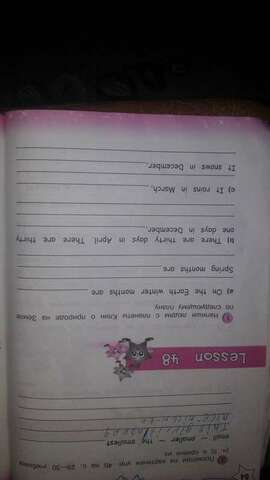 64
2 Посмотри на картинки упр. 4b на с. 29–30 учебника
small – smaller – the smallest
Lesson 48
1 Напиши людям с планеты Клин о природе на Земле
по следующему плану.
a) On the Earth winter months are
Spring months are
b) There are thirty days in April. There are thirty
one days in December.
c) It rains in March.
It snows in December.